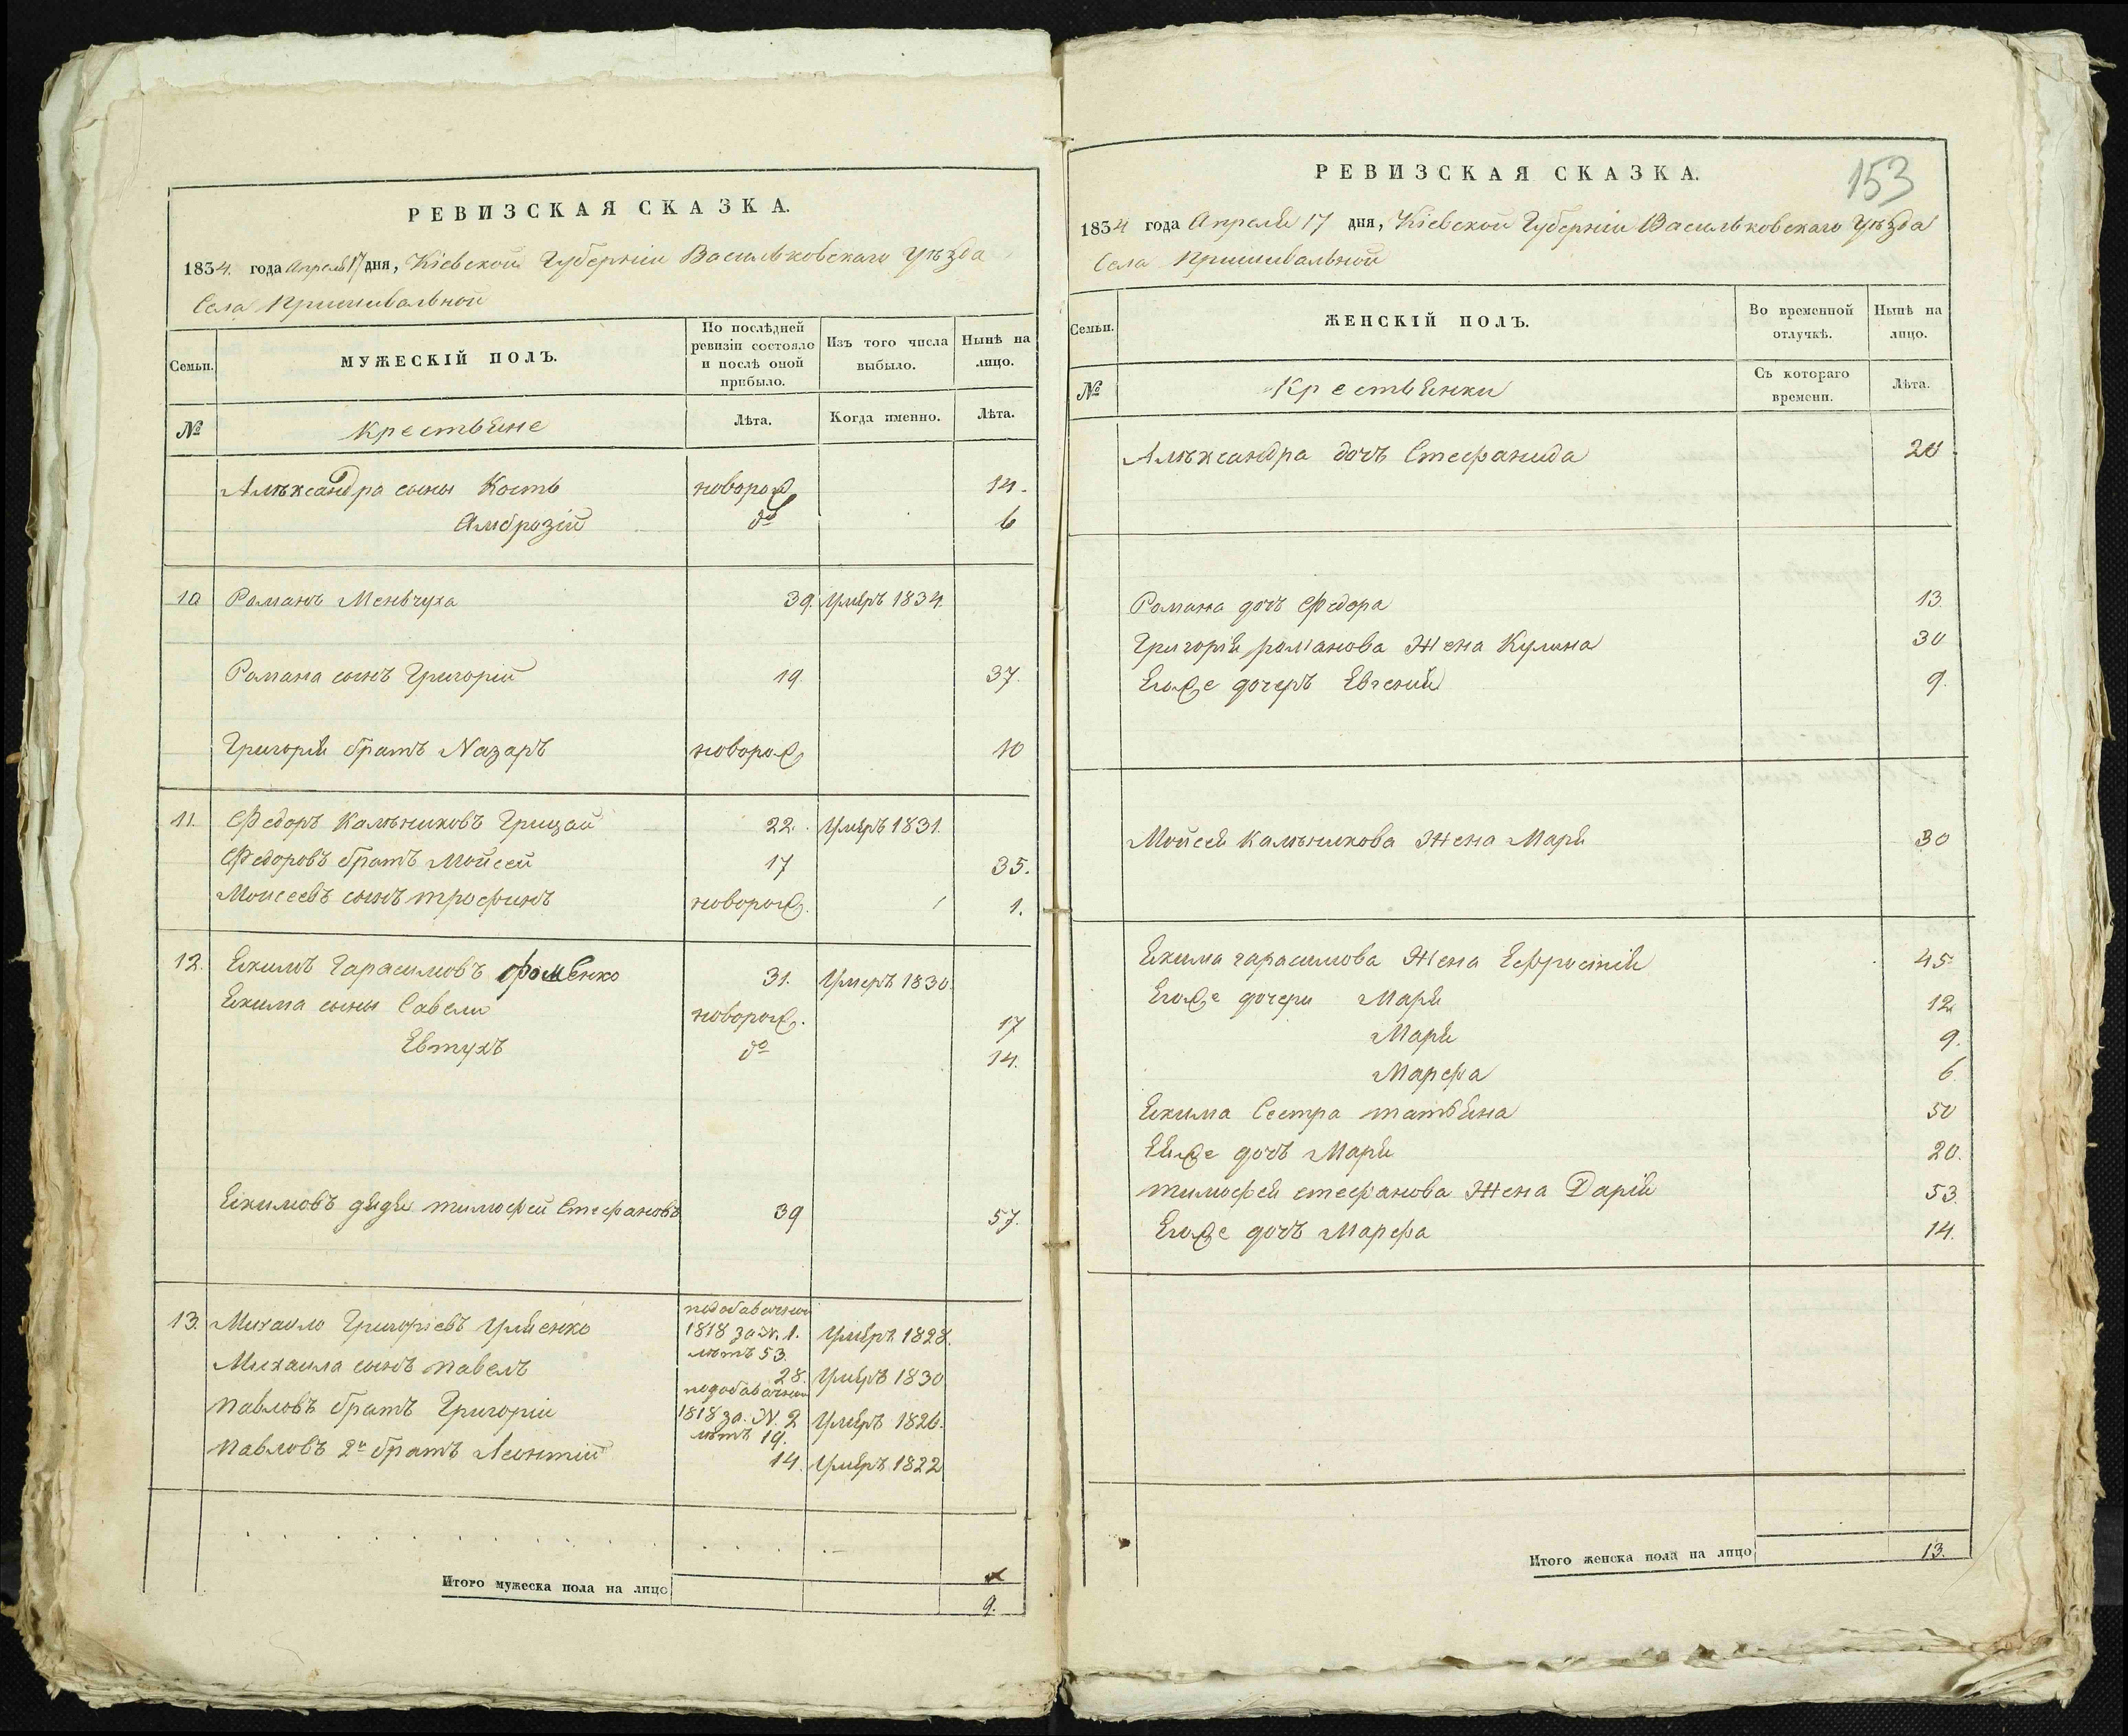 РЕВИЗСКАЯ СКАЗКА.
1834. года Апреля 17 дня, Кіевской Губерніи Васильковскаго Уѣзда
Села Пришивальной
Семьи.
МУЖЕСКІЙ ПОЛЪ.
По послѣдней ревизіи состояло и послѣ оной прибыло.
Изъ того числа выбыло.
Нынѣ на лицо.
№
Крестьяне
Лѣта.
Когда именно.
Лѣта.
Алѣксандра сыны Кость новорож 14.
Амброзій до 6
10 Романъ Меньчуха 39. Умѣръ 1834.
Романа сынъ Григорій 19. 37.
Григорія братъ Назаръ новорож 10
11. Федоръ Калѣниковъ Грицай 22. Умѣръ 1831.
Федоровъ братъ Мойсей 17 35.
Моисеевъ сынъ трофимъ новорож. 1.
12. Екимъ Гарасимовъ Фоменко 31. Умеръ 1830.
Екима сыны Савели новорож. 17
Евтухъ до 14.
Екимовъ дядя тимофей Стефановъ 39 57.
13. Михаило Григорієвъ Уліенко подобавочной 1818 за №. 1. лѣтъ 53. Умѣръ 1828.
Михаила сынъ павелъ 28. Умѣръ 1830
павловъ братъ Григорій подобавочной 1818 за. №. 2 лѣтъ 19. Умѣръ 1826.
павловъ 2й братъ Леонтій 14. Умѣръ 1822
Итого мужеска пола на лицо
9.
153
РЕВИЗСКАЯ СКАЗКА.
1834 года Апреля 17 дня, Кіевской Губерніи Васильковскаго Уѣзда
Села Пришивальной
Семьи.
ЖЕНСКІЙ ПОЛЪ.
Во временной отлучкѣ.
Нынѣ на лицо.
№
Крестьянки
Съ котораго времени.
Лѣта.
Алѣксандра дочъ Стефанида 20
Романа дочъ Федора 13
Григорія романова Жена Кулина 30
Егоже дочеръ Евгенія 9.
Мойсея Калѣникова Жена Маря 30
Екима гарасимова Жена Ефросинія 45
Егоже дочери Маря 12
Маря 9.
Марфа 6
Екима Сестра татьяна 50
Еяже дочъ Маря 20.
тимофея стефанова Жена Дарія 53.
Егоже дочъ Марфа 14.
Итого женска пола на лицо 13.